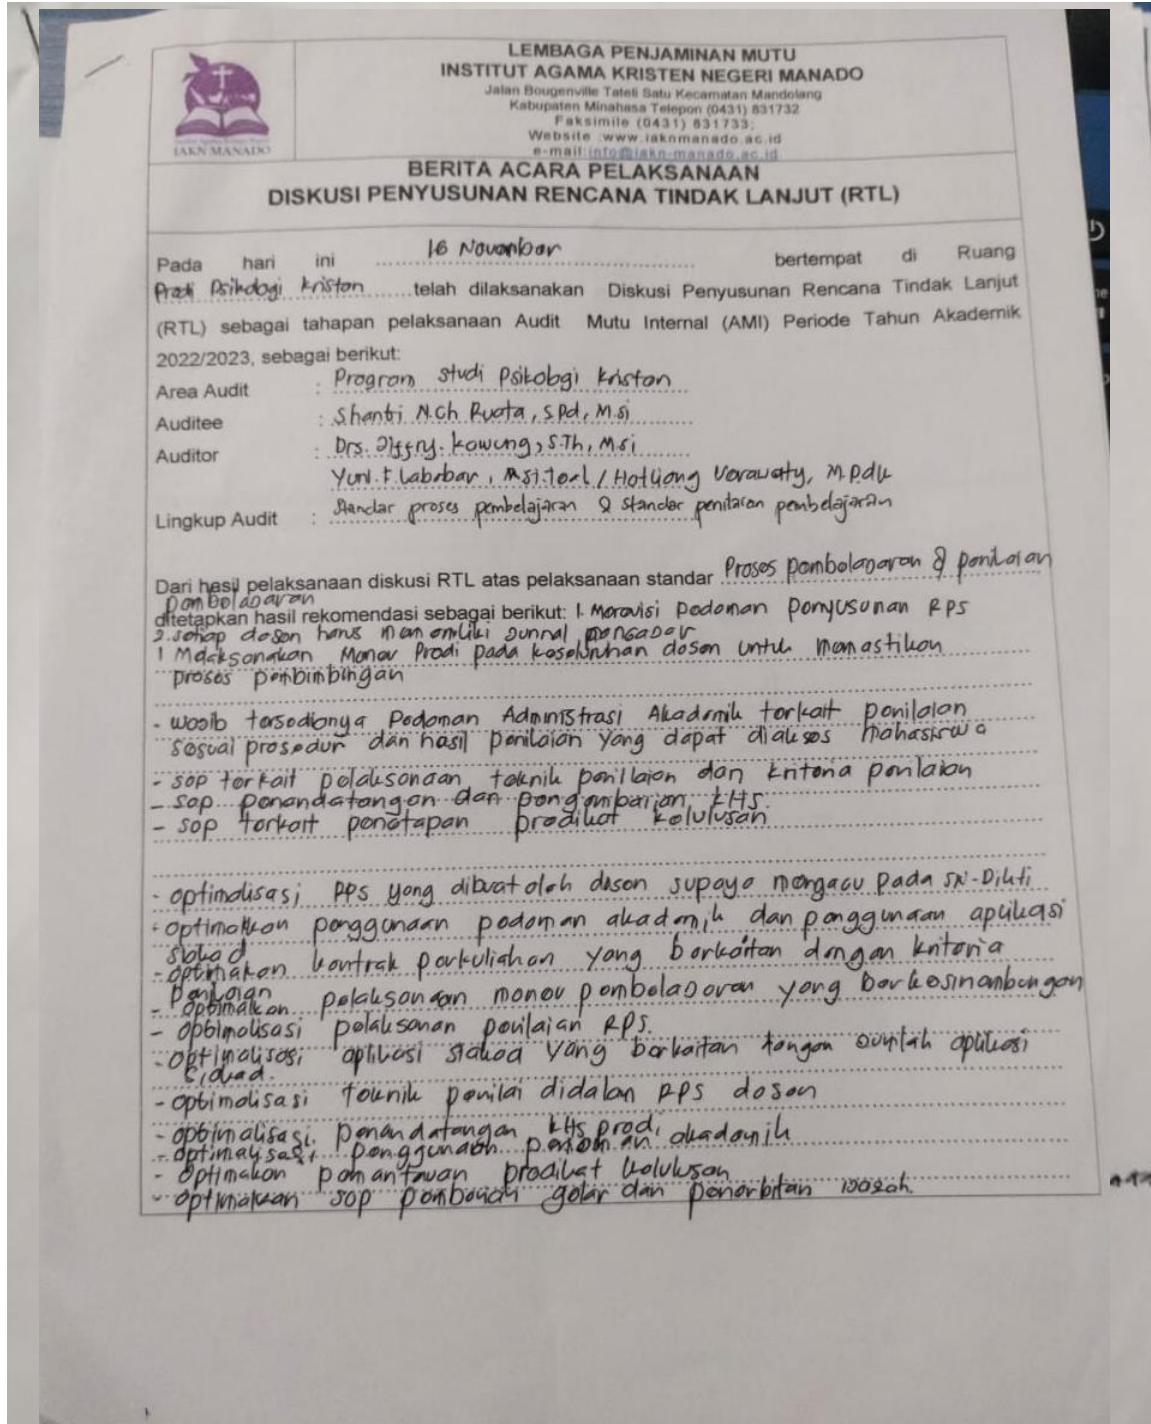 LEMBAGA PENJAMINAN MUTU
INSTITUT AGAMA KRISTEN NEGERI MANADO
Jalan Bougenville Tateli Satu Kecamatan Mandolang
Kabupaten Minahasa Telepon (0431) 831732
Faksimile (0431) 831733;
Website :www.iaknmanado.ac.id
e-mail:info@iakn-manado.ac.id
IAKN MANADO
BERITA ACARA PELAKSANAAN
DISKUSI PENYUSUNAN RENCANA TINDAK LANJUT (RTL)
Pada hari ini 16 November bertempat di Ruang
Prodi Psikologi Kristen telah dilaksanakan Diskusi Penyusunan Rencana Tindak Lanjut
(RTL) sebagai tahapan pelaksanaan Audit Mutu Internal (AMI) Periode Tahun Akademik
2022/2023, sebagai berikut:
Area Audit : Program studi Psikologi Kristen
Auditee : Shanti N.Ch Ruata, S.Pd, M.si
Auditor : Drs. Kowung, S.Th, Msi
Yuni. F. Labobar, / Hotliong Verawaty, M.Pdk
Lingkup Audit : Standar proses pembelajaran & standar penilaian pembelajaran
Dari hasil pelaksanaan diskusi RTL atas pelaksanaan standar Proses pembelajaran & penilaian
pembelajaran
ditetapkan hasil rekomendasi sebagai berikut: 1. Merevisi pedoman penyusunan RPS
2. setiap dosen harus memiliki jurnal mengajar
1 Melaksanakan Monev Prodi pada keseluruhan dosen untuk memastikan
proses pembimbingan
- wajib tersedianya Pedoman Administrasi Akademik terkait penilaian
sesuai prosedur dan hasil penilaian yang dapat diakses mahasiswa
- SOP terkait pelaksanaan, teknik penilaian dan kriteria penilaian
- SOP penandatangan dan pengembarian KHS.
- SOP terkait penetapan predikat kelulusan
- optimalisasi RPS yang dibuat oleh dosen supaya mengacu pada SN-Dikti
- optimalkan penggunaan pedoman akademik dan penggunaan aplikasi
siakad
- optimakan kontrak perkuliahan yang berkaitan dengan kriteria
penilaian
- optimalkan pelaksanaan monev pembelajaran yang berkesinambungan
- optimalisasi pelaksanan penilaian RPS.
- optimalisasi aplikasi siakad yang berkaitan tengan jumlah aplikasi
siakad.
- optimalisasi teknik penilai didalan RPS dosen
- optimalisasi penandatangan KHS prodi
- optimalisasi penggunaan pedoman akademik
- optimakan pemantauan predikat kelulusan
- optimalkan SOP gelar dan penerbitan ijazah.